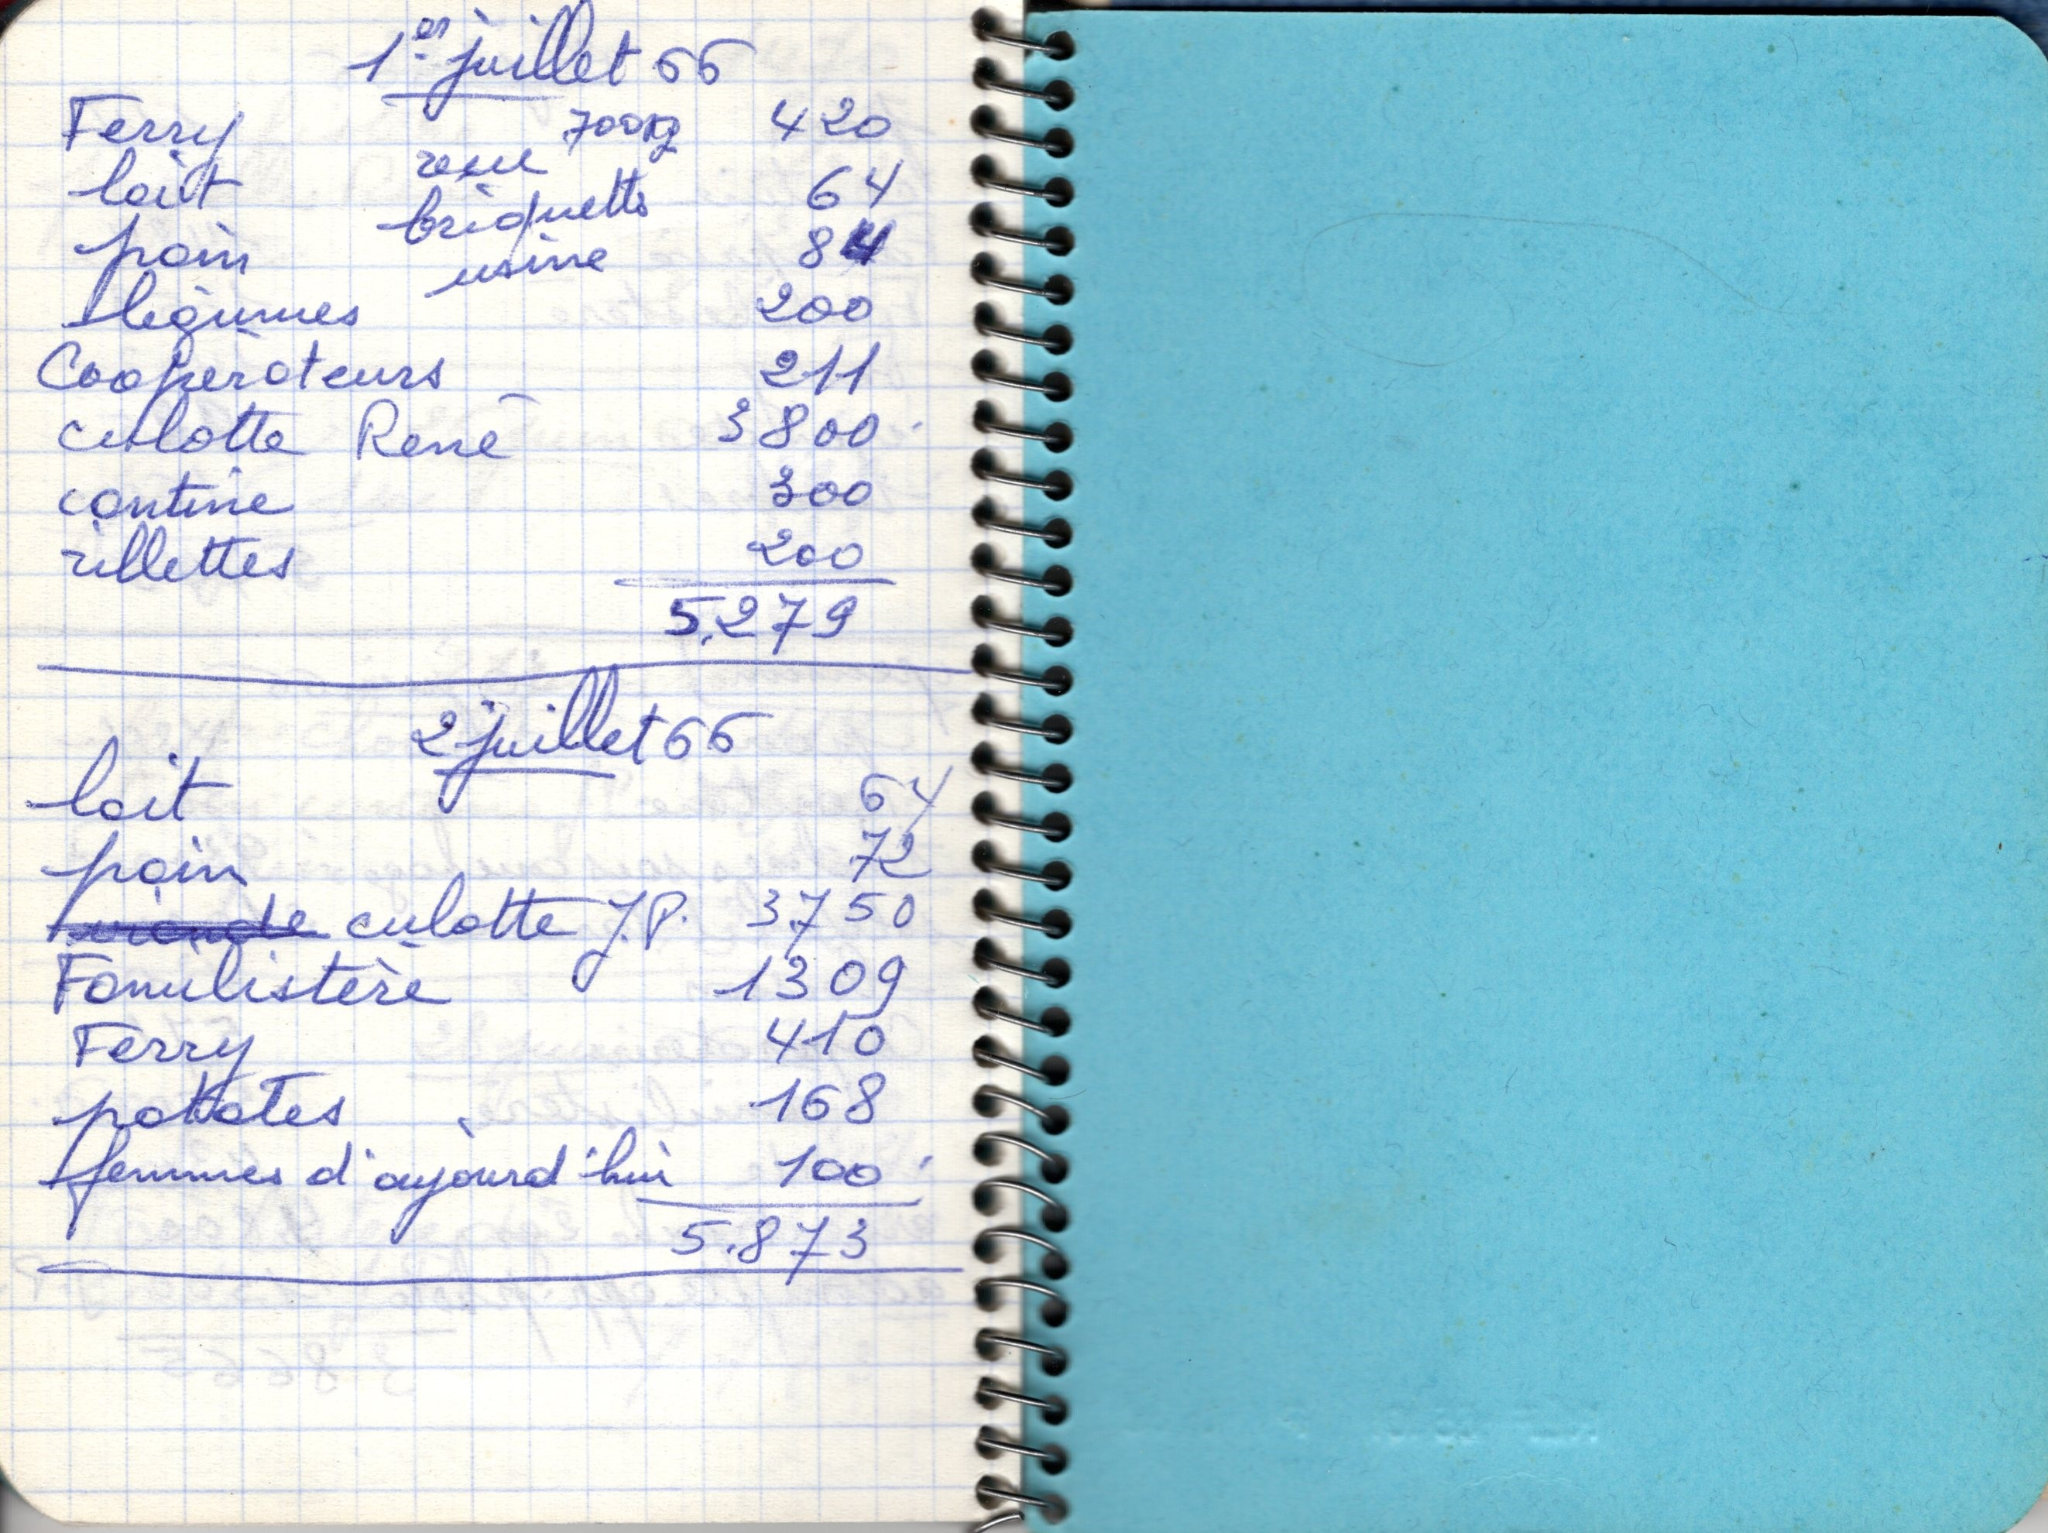 1er juillet 66
Ferry 420
reçu 700kg
lait 64
briquettes
pain 84
usine
légumes 200
Coopérateurs 211
culotte René 3800
cantine 300
rillettes 200
5.279
2 juillet 66
lait 64
pain 72
viande culotte J.P. 3.750
Familistère 1309
Ferry 410
patates 168
femmes d'aujourd'hui 100
5.873